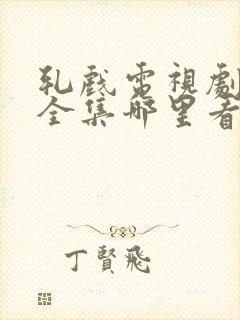 乳戲電視劇
全集哪里看
丁賢飛